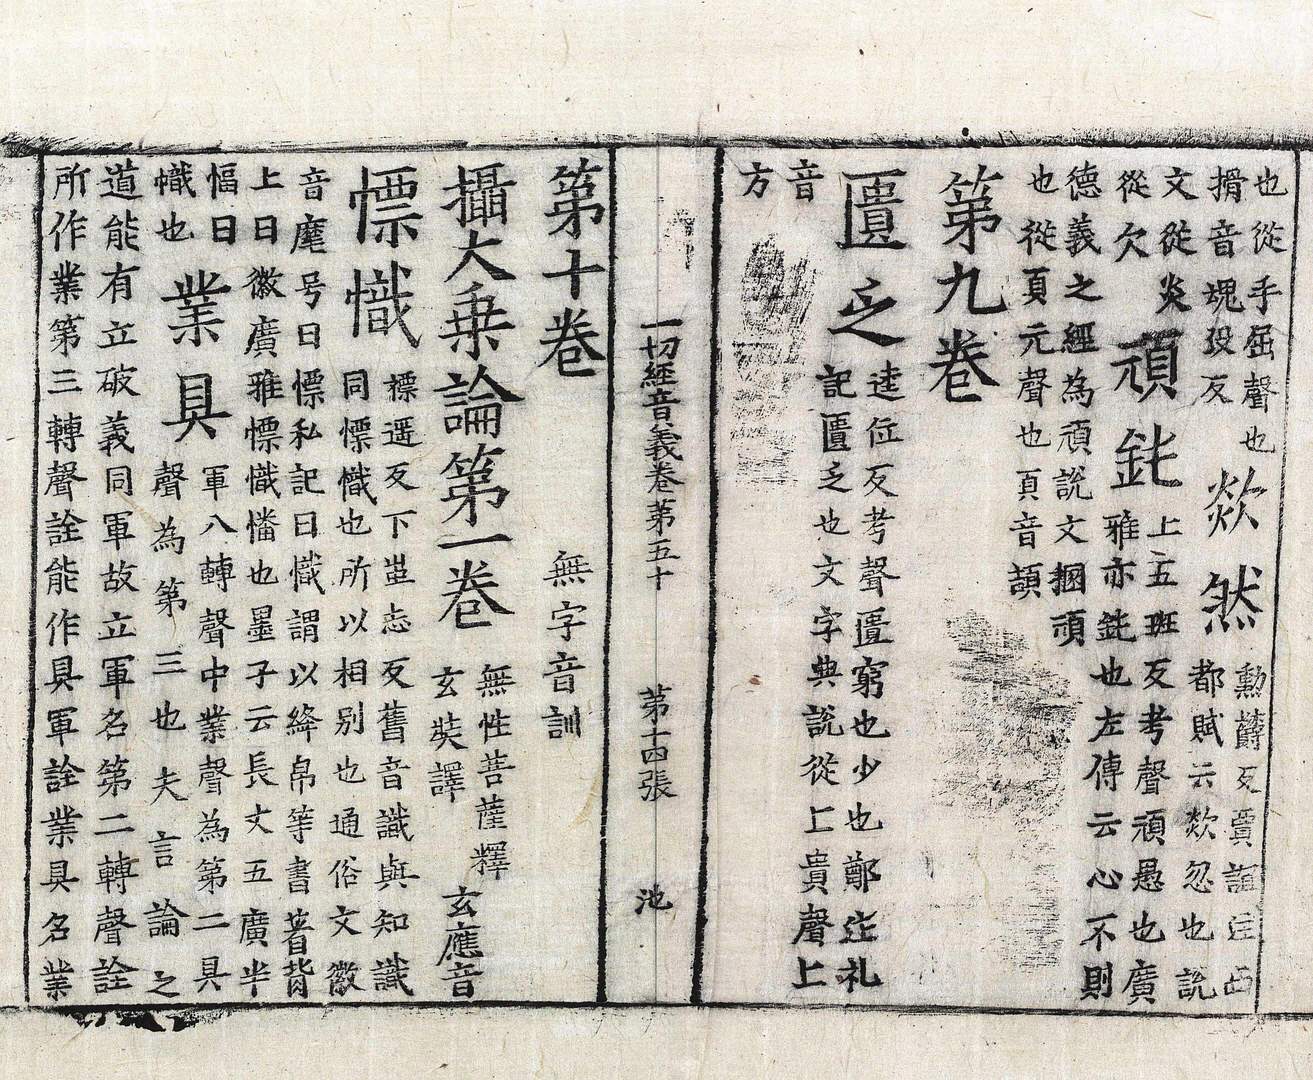 也從手屈聲也
搰音塊歿反
欻然
勳欝反賈誼注西
都賦云欻忽也說
文從炎
從欠
頑鈍
上五班反考聲頑愚也廣
雅亦鈍也左傳云心不則
德義之經為頑說文捆頑
也從頁元聲也頁音頡
第九卷
匱乏
逵位反考聲匱窮也少也鄭注礼
記匱乏也文字典說從匚貴聲匚
音
方
一切經音義卷第五十 第十四張 池
第十卷 無字音訓
攝大乗論第一卷
無性菩薩釋
玄奘譯
玄應音
幖幟
標遥反下蚩志反舊音識與知識
同幖幟也所以相別也通俗文徽
音麾号曰幖私記曰幟謂以絳帛等書著背
上曰徽廣雅幖幟幡也墨子云長丈五廣半
幅曰
幟也
業具
軍八轉聲中業聲為第二具
聲為第三也夫言論之
道能有立破義同軍故立軍名第二轉聲詮
所作業第三轉聲詮能作具軍詮業具名業